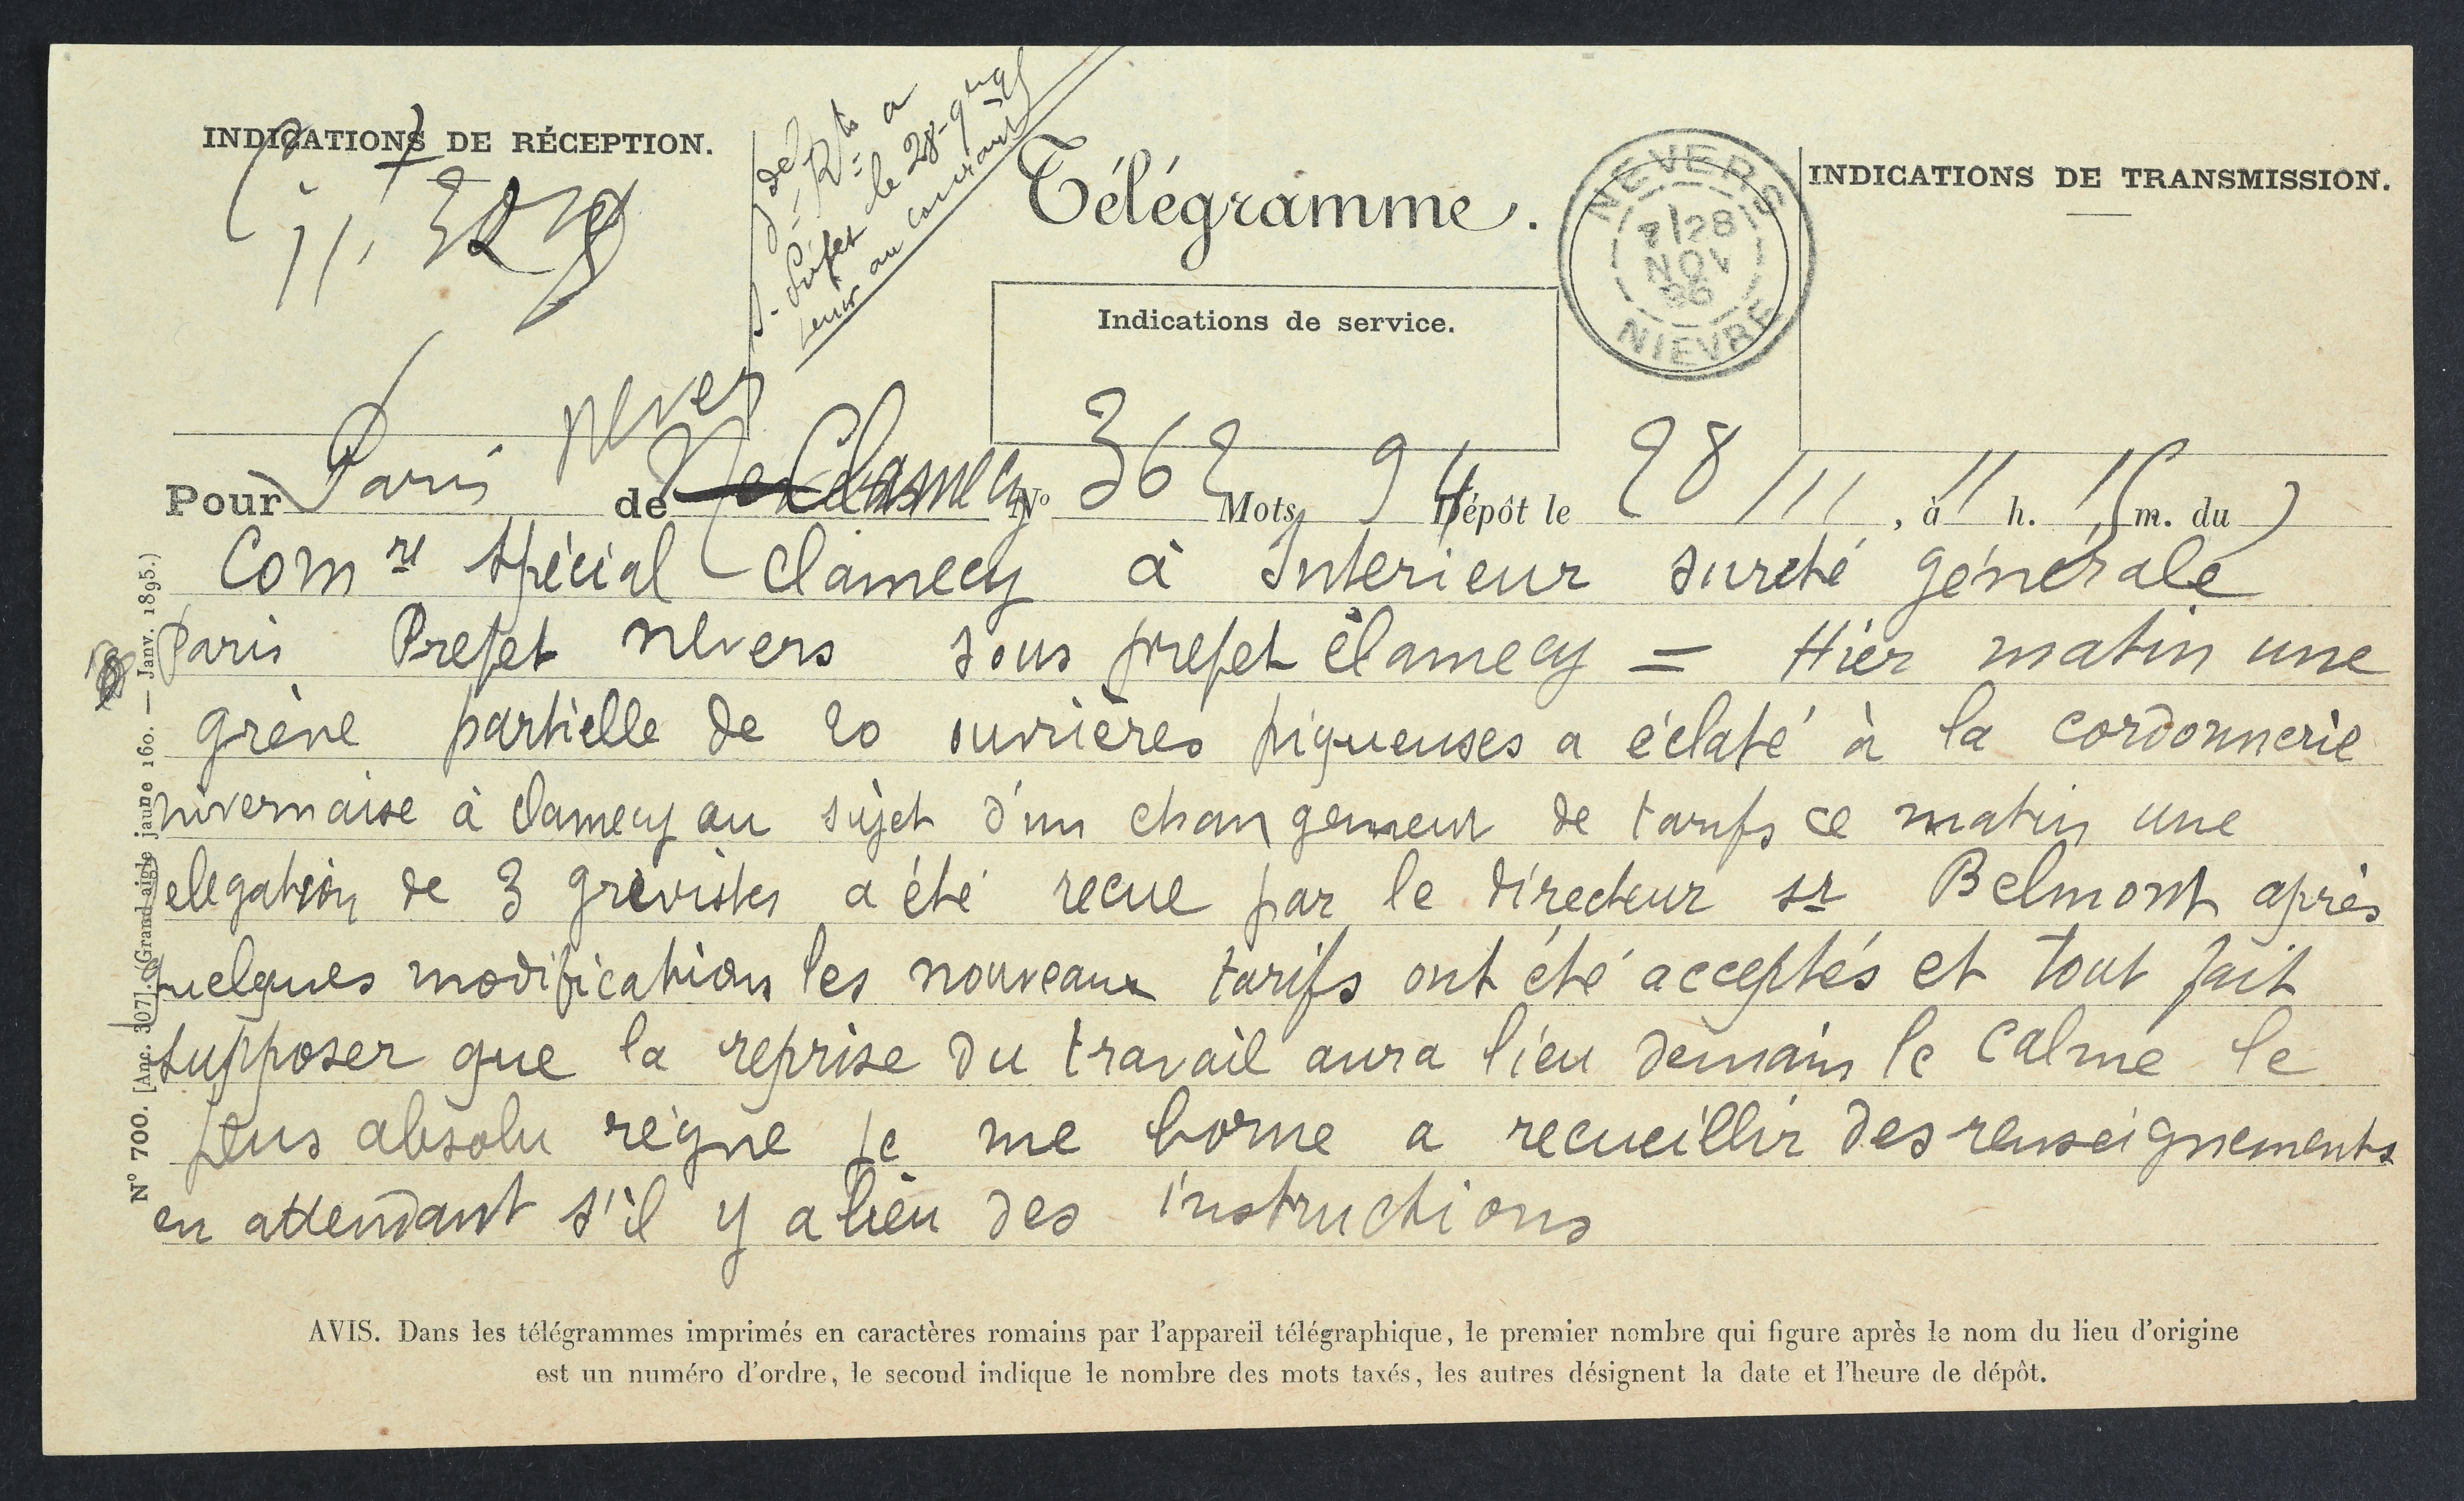 INDICATIONS DE RÉCEPTION.
11. 30
S. Préfet le 28
tenir au courant
Télégramme.
NEVERS
28
NOV
96
NIEVRE
INDICATIONS DE TRANSMISSION.
Indications de service.
Nevers
Pour Paris de Clamecy No 362 Mots 94 Dépôt le 28/11, à 11 h. 15 m. du
Comre spécial Clamecy à Interieur sureté génerale
Paris Prefet nevers sous prefet clamecy = Hier matin une
grève partielle de 20 ouvrières piqueuses a éclaté à la cordonnerie
nivernaise à clamecy au sujet d'un changement de tarifs ce matin une
delegation de 3 grèvistes a été recue par le directeur sr Belmont après
quelques modifications les nouveaux tarifs ont été acceptés et tout fait
supposer que la reprise du travail aura lieu demain le calme le
plus absolu règne je me borne a recueillir des renseignements
en attendant s'il y a lieu des instructions
N° 700. [Anc. 307]. (Grand-aigle jaune 160. — Janv. 1895.)
AVIS. Dans les télégrammes imprimés en caractères romains par l'appareil télégraphique, le premier nombre qui figure après le nom du lieu d'origine
est un numéro d'ordre, le second indique le nombre des mots taxés, les autres désignent la date et l'heure de dépôt.